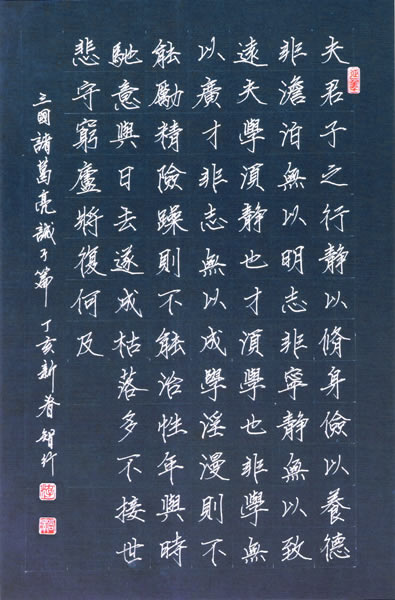 夫君子之行静以脩身儉以養德
非澹泊無以明志非寧静無以致
遠夫學須静也才須學也非學無
以廣才非志無以成學淫漫則不
能勵精險躁則不能治性年與時
馳意與日去遂成枯落多不接世
悲守窮廬將復何及
三國諸葛亮誡子篇 丁亥新春 智行